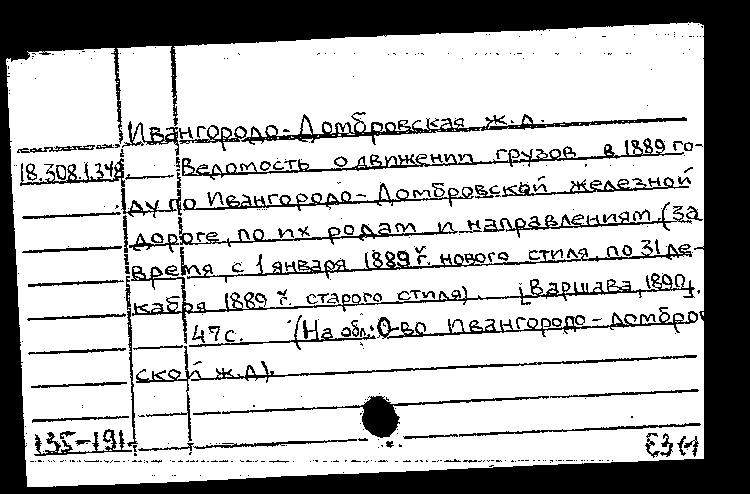 Ивангородо-Домбровская ж.д.
18.308.1.348. Ведомость о движении грузов в 1889 го-
ду по Ивангородо-Домбровской железной
дороге, по их родам и направлениям (за
время с 1 января 1889 г. нового стиля, по 31 де-
кабря 1889 г. старого стиля). [Варшава, 1890].
47с. (На обл.: О-во Ивангородо-Домбров
ской ж.д).
135-191-